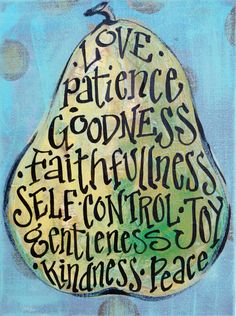 ·LOVE·
patience
GOODNESS
·Faithfullness
SELF·CONTROL·JOY
gentleness
·Kindness·Peace·